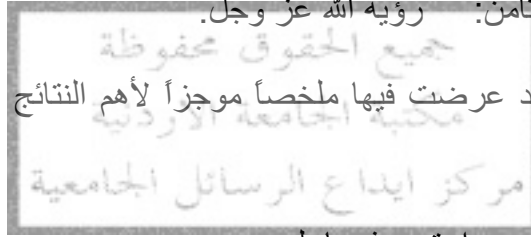 ثامن: رؤية الله عز وجل.
جميع الحقوق محفوظة
د عرضت فيها ملخصاً موجزاً لأهم النتائج
مكتبة الجامعة الاردنية
مركز ايداع الرسائل الجامعية